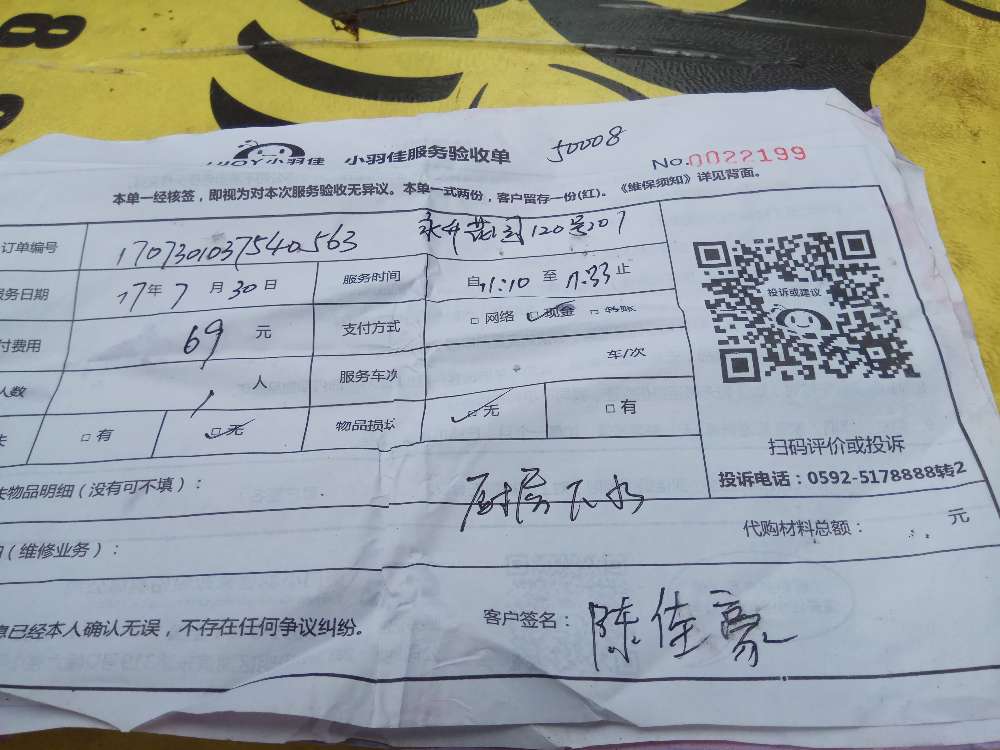 8
IJOY小羽佳 小羽佳服务验收单 50008 No.0022199
本单一经核签，即视为对本次服务验收无异议。本单一式两份，客户留存一份(红)。《维保须知》详见背面。
订单编号 1707301037540563 120号207
服务日期 17年7月30日 服务时间 自11:10至11:33止
付费用 69元 支付方式 □网络 □现金 □转账
人数 1人 服务车次 车/次
失 □有 □无 物品损坏 □无 □有
投诉或建议
扫码评价或投诉
投诉电话：0592-5178888转2
失物品明细（没有可不填）：
厨房下水
代购材料总额： 元
（维修业务）：
息已经本人确认无误，不存在任何争议纠纷。
客户签名：陈佳豪